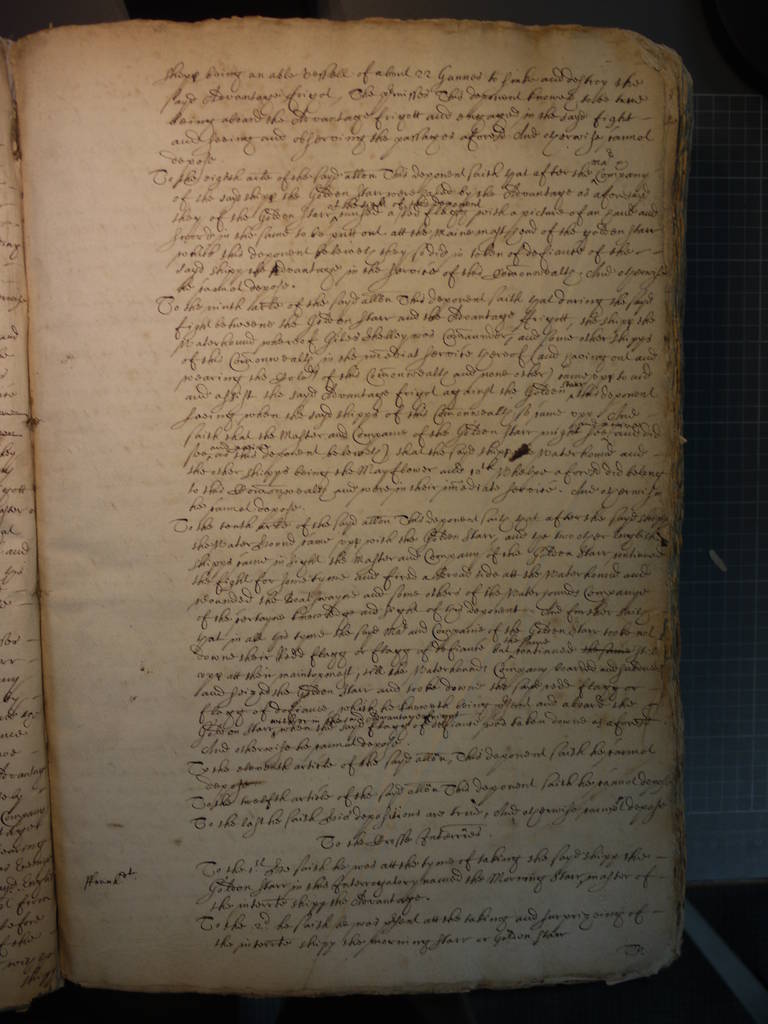 shipp being an able vessell of about 22 Gunnes to sinke and destroy the
sayd Advantage frigot, The premisses this deponent knoweth to be true
being aboard the Advantage frigott and engaged in the sayd fight
and seeing and observing the passages aforesd And otherwise cannot
depose
To the eighth arle of the sayd allon This deponent saith that after the Company
of the said shipp the Golden Starr were by the Advantage as aforesaid
they of the Golden Starr at the sight of this deponent a red flagg with a picture of an and
sword in the same to be putt out att the maine mast head of the golden starr
which this deponent beleiveth they so did in token of defiance of the
sayd shipp the Advantage in the service of this Comonwealth, And otherwise
he cannot depose.
To the ninth arle of the sayd allon This deponent saith that during the sayd
fight betweene the Golden Starr and the Advantage frigott, the shipp the
Waterhound whereof Giles Shelley was Comander, and some other shipps
of this Comonwealth in the imediat service thereof (and having out and
wearing the Colors of this Comonwealth and none other) came upp to aid
and assist the sayd Advantage frigot against the Golden Starr, this deponent
seeing when the sayd shipps of this Comonwealth so came upp, And
saith that the Master and Companie of the Golden Starr might see and did
see (as this deponent beleiveth) that the sayd shipp Waterhound and
the other shipps being the Mayflower and Whelpe aforesd did belong
to this Comonwealth and were in their imediate service. And otherwise
he cannot depose.
To the tenth arle of the sayd allon This deponent saith that after the sayd shipp
the Water Hound came upp with the Golden Starr, and the two other English
shipps came in sight the Master and Company of the Golden Starr continued
the fight for some tyme and fired a broad side att the Waterhound and
wounded the Boatswayne and some others of the Waterhounds Companye
of the certayne knowledge and sight of this deponent. And further saith
that in all the tyme the sayd Mar and Companie of the Golden Starr tooke not
downe their Redd flagg or flagg of defiance but continued the same
upp att their maintopmast, till the Waterhounds Company boarded and subdued
and seized the Golden Starr and tooke downe the said redd flagg or
flagg of defiance, which he knoweth being present and aboard the
Golden Starr when the sayd flagg of defiance was taken downe as aforesd
And otherwise he cannot depose.
To the eleventh article of the sayd allon, This deponent saith he cannot
depose
To the twelfth article of the sayd allon This deponent saith he cannot depose
To the last he saith his depositions are true, And otherwise cannot depose
To the Crosse Interries.
ffrancklt.
To the 1st hee saith he was att the tyme of taking the sayd shipp the
Golden Starr in this Interrogatory named the Morning Starr, master of
the interrte shipp the Advantage.
To the 2d he saith he was present att the taking and surprizeing of
the interrte shipp the Morning Starr or Golden Starr